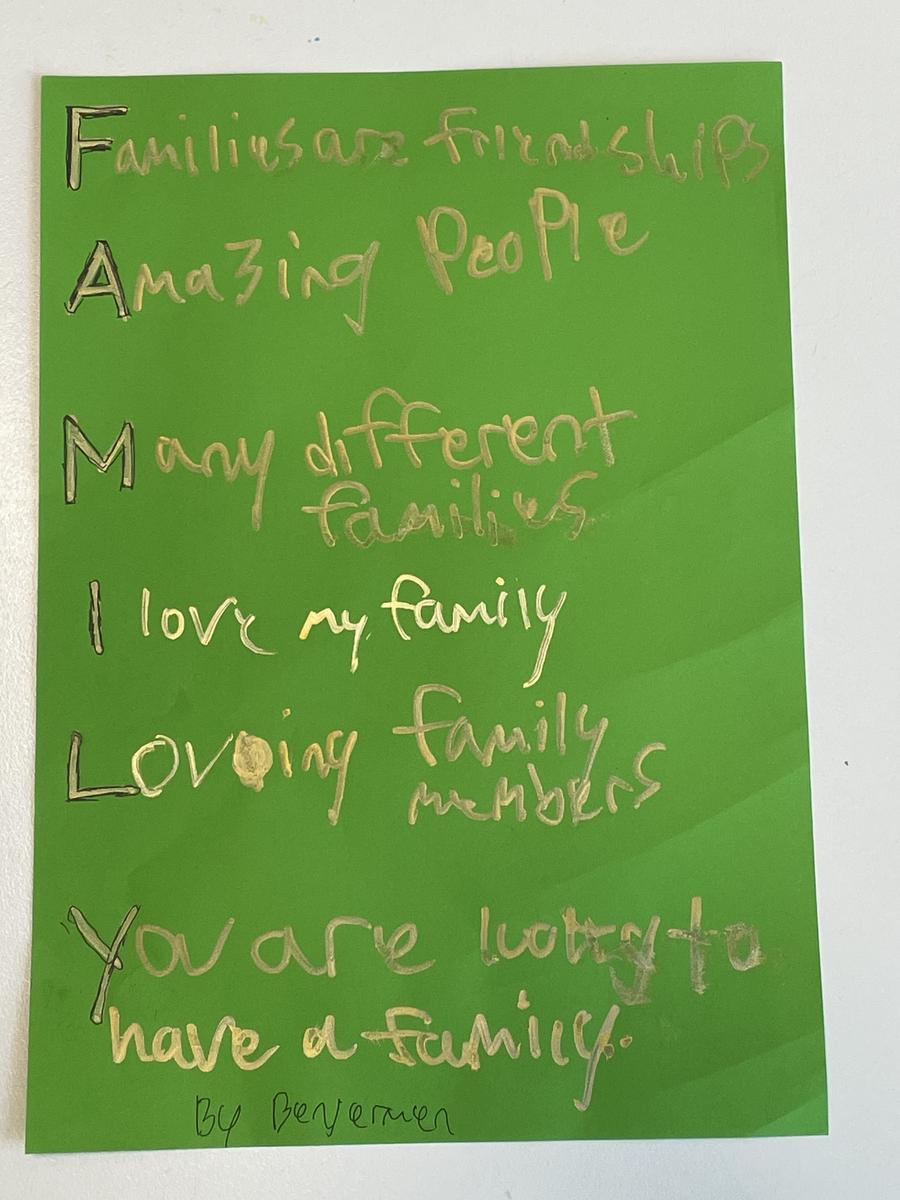 Families are friendships
Amazing People
Many different
families
I love my family
Loving family
members
You are lucky to
have a family.
By Benjermen